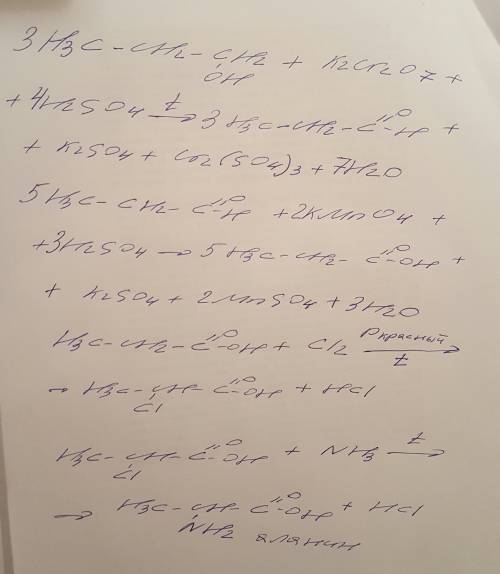 3H3C-CH2-CH2 + K2Cr2O7 +
OH
+ 4H2SO4 t→ 3H3C-CH2-C=O-H +
+ K2SO4 + Cr2(SO4)3 + 7H2O
5H3C-CH2-C=O-H + 2KMnO4 +
+3H2SO4 → 5H3C-CH2-C=O-OH +
+ K2SO4 + 2MnSO4 + 3H2O
H3C-CH2-C=O-OH + Cl2 P красный t→
→ H3C-CH-C=O-OH + HCl
Cl
H3C-CH-C=O-OH + NH3 t→
Cl
→ H3C-CH-C=O-OH + HCl
NH2 аланин